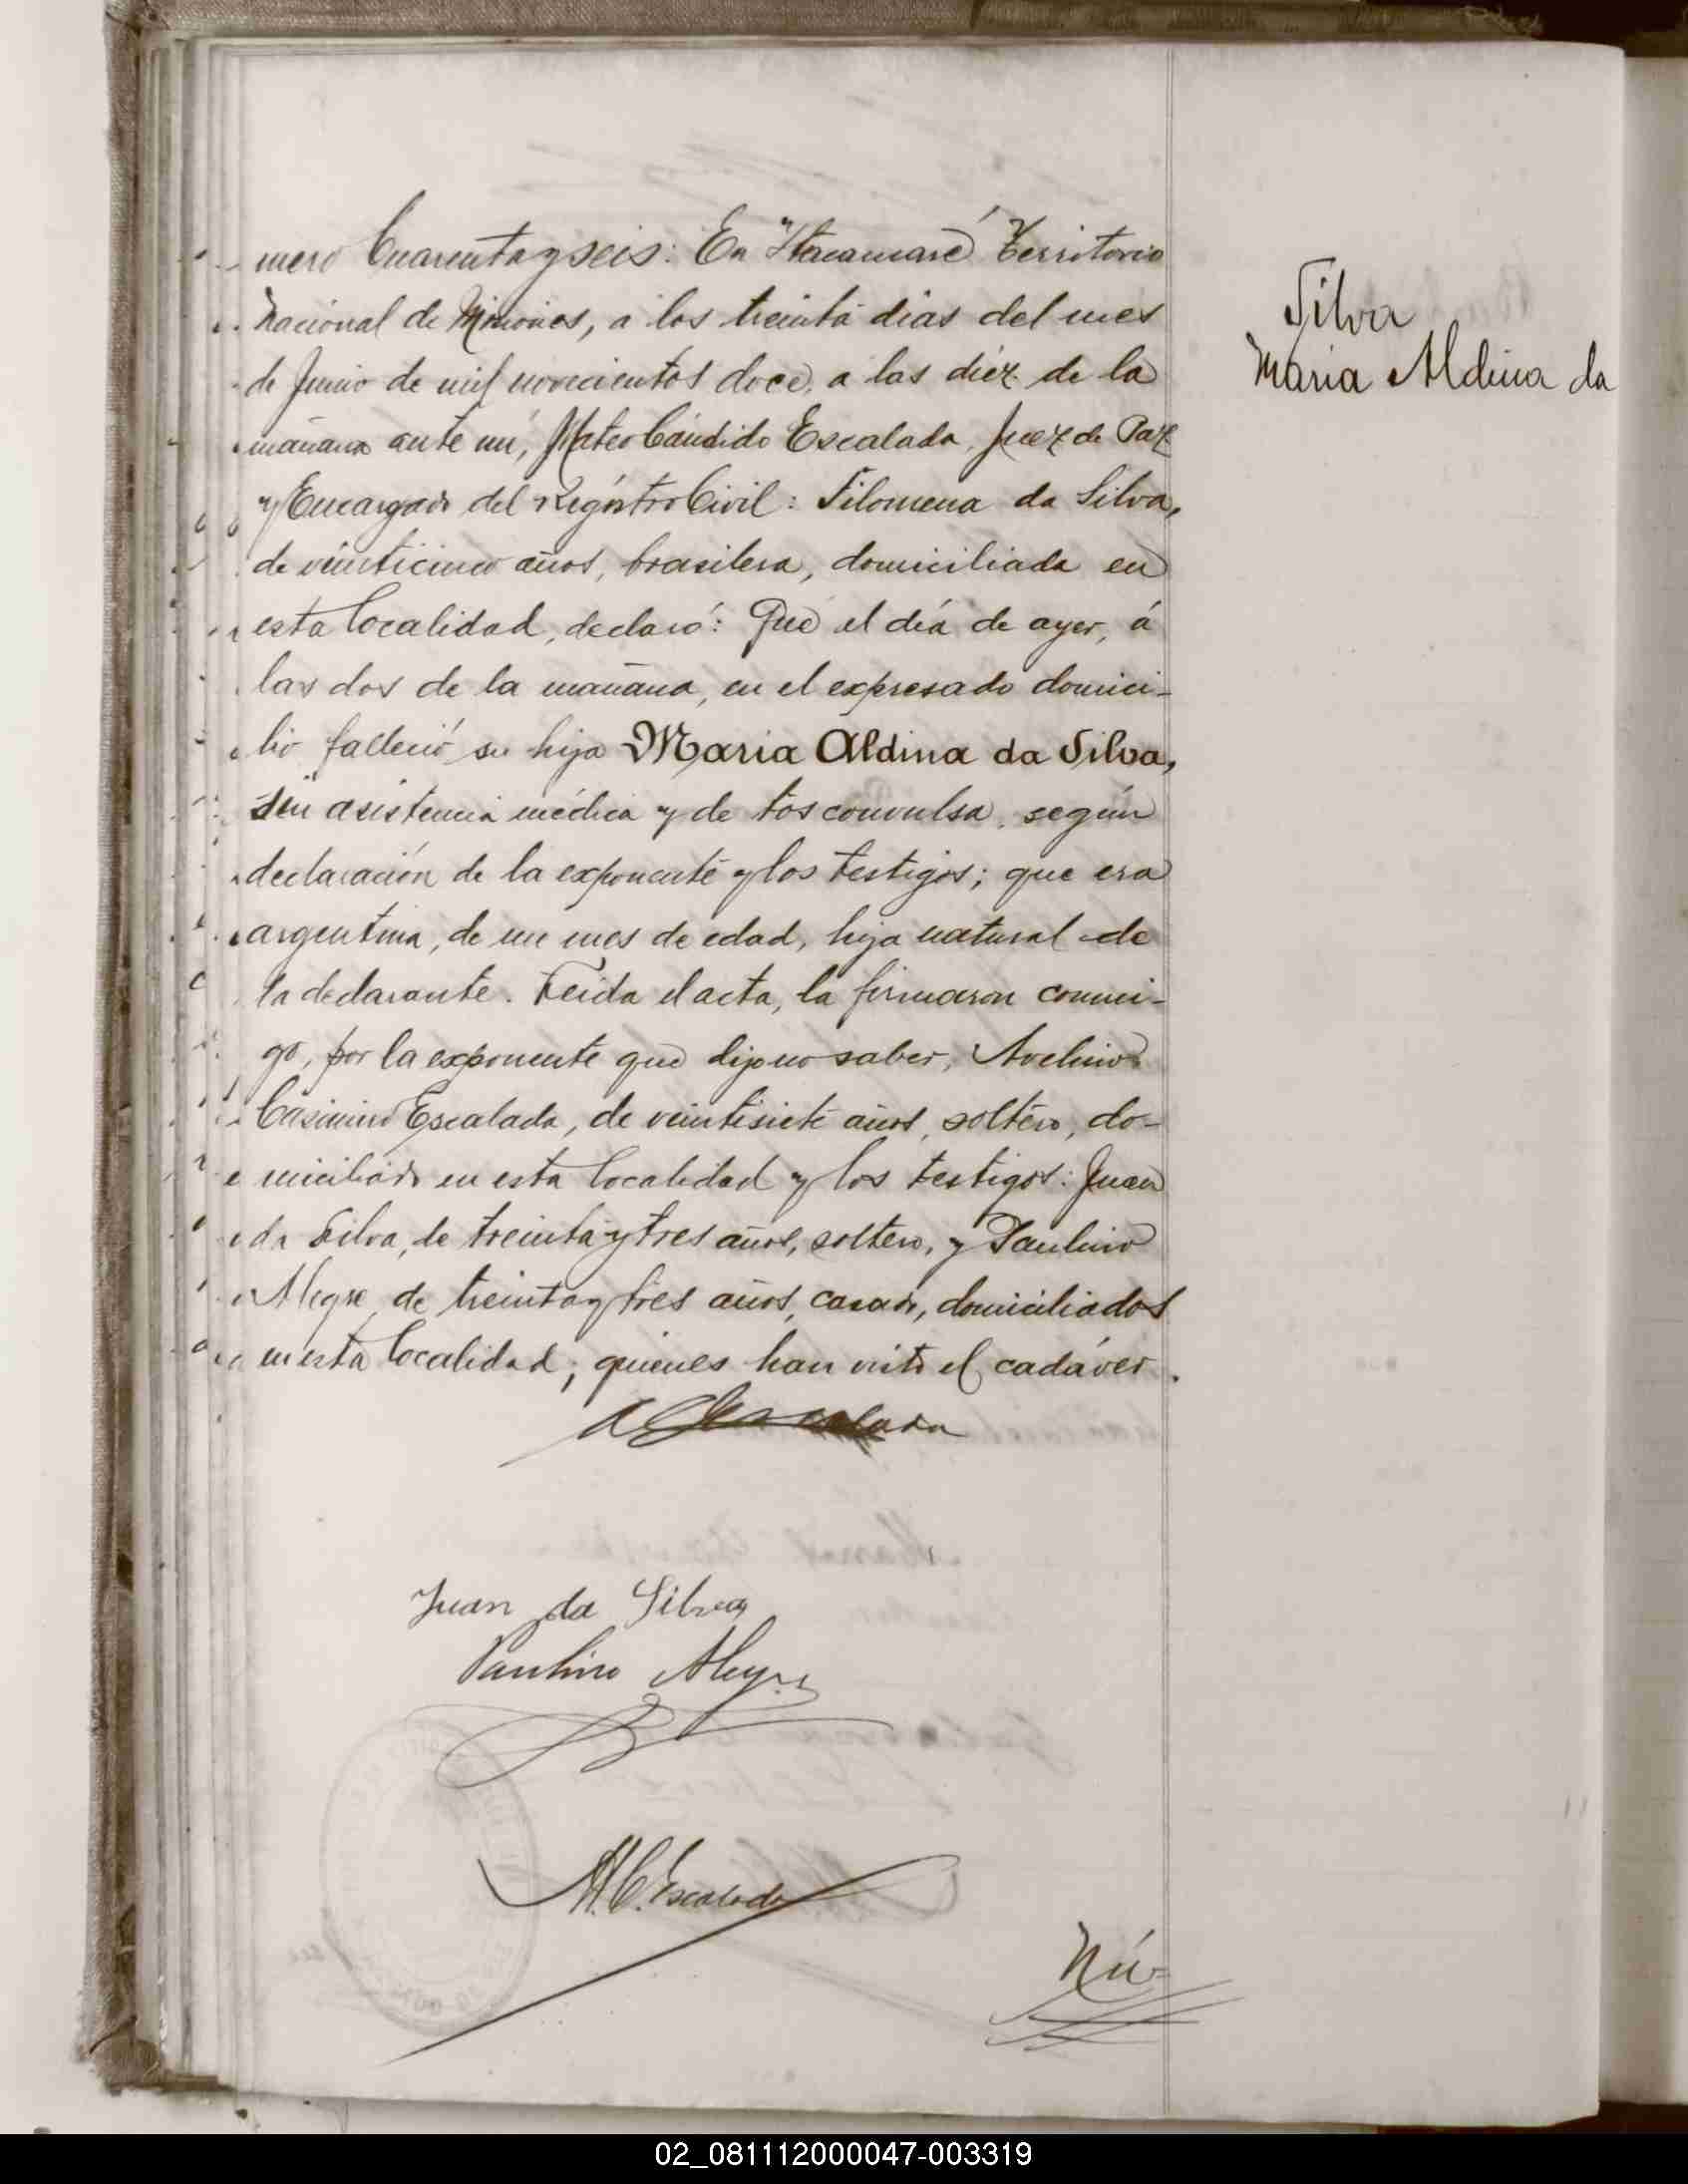 mero Cuarenta y seis: En Itacaruaré Territorio
Nacional de Misiones, a los treinta dias del mes
de Junio de mil novecientos doce, a las diéz de la
mañana ante mi, Mateo Cándido Escalada, Juez de Paz
y Encargado del Registro Civil: Filomena da Silva,
de veinticinco años, brasilera, domiciliada en
esta localidad, declaró: Que el día de ayer, á
las dos de la mañana, en el expresado domici-
lio falleció su hija Maria Aldina da Silva,
sin asistencia médica y de tos convulsa, según
declaración de la exponente y los testigos; que era
argentina, de un mes de edad, hija natural de
la declarante. Leida el acta, la firmaron conmi-
go, por la exponente que dijo no saber, Avelino
Casimiro Escalada, de veintisiete años, soltero, do-
miciliado en esta localidad y los testigos: Juan
da Silva, de treinta y tres años, soltero, y Paulino
Alegre, de treinta y tres años, casado, domiciliados
en esta localidad; quienes han visto el cadáver.
A C Escalada
Juan da Silva
Paulino Alegre
M. C. Escalada
Nú-
Silva
Maria Aldina da
02_081112000047-003319